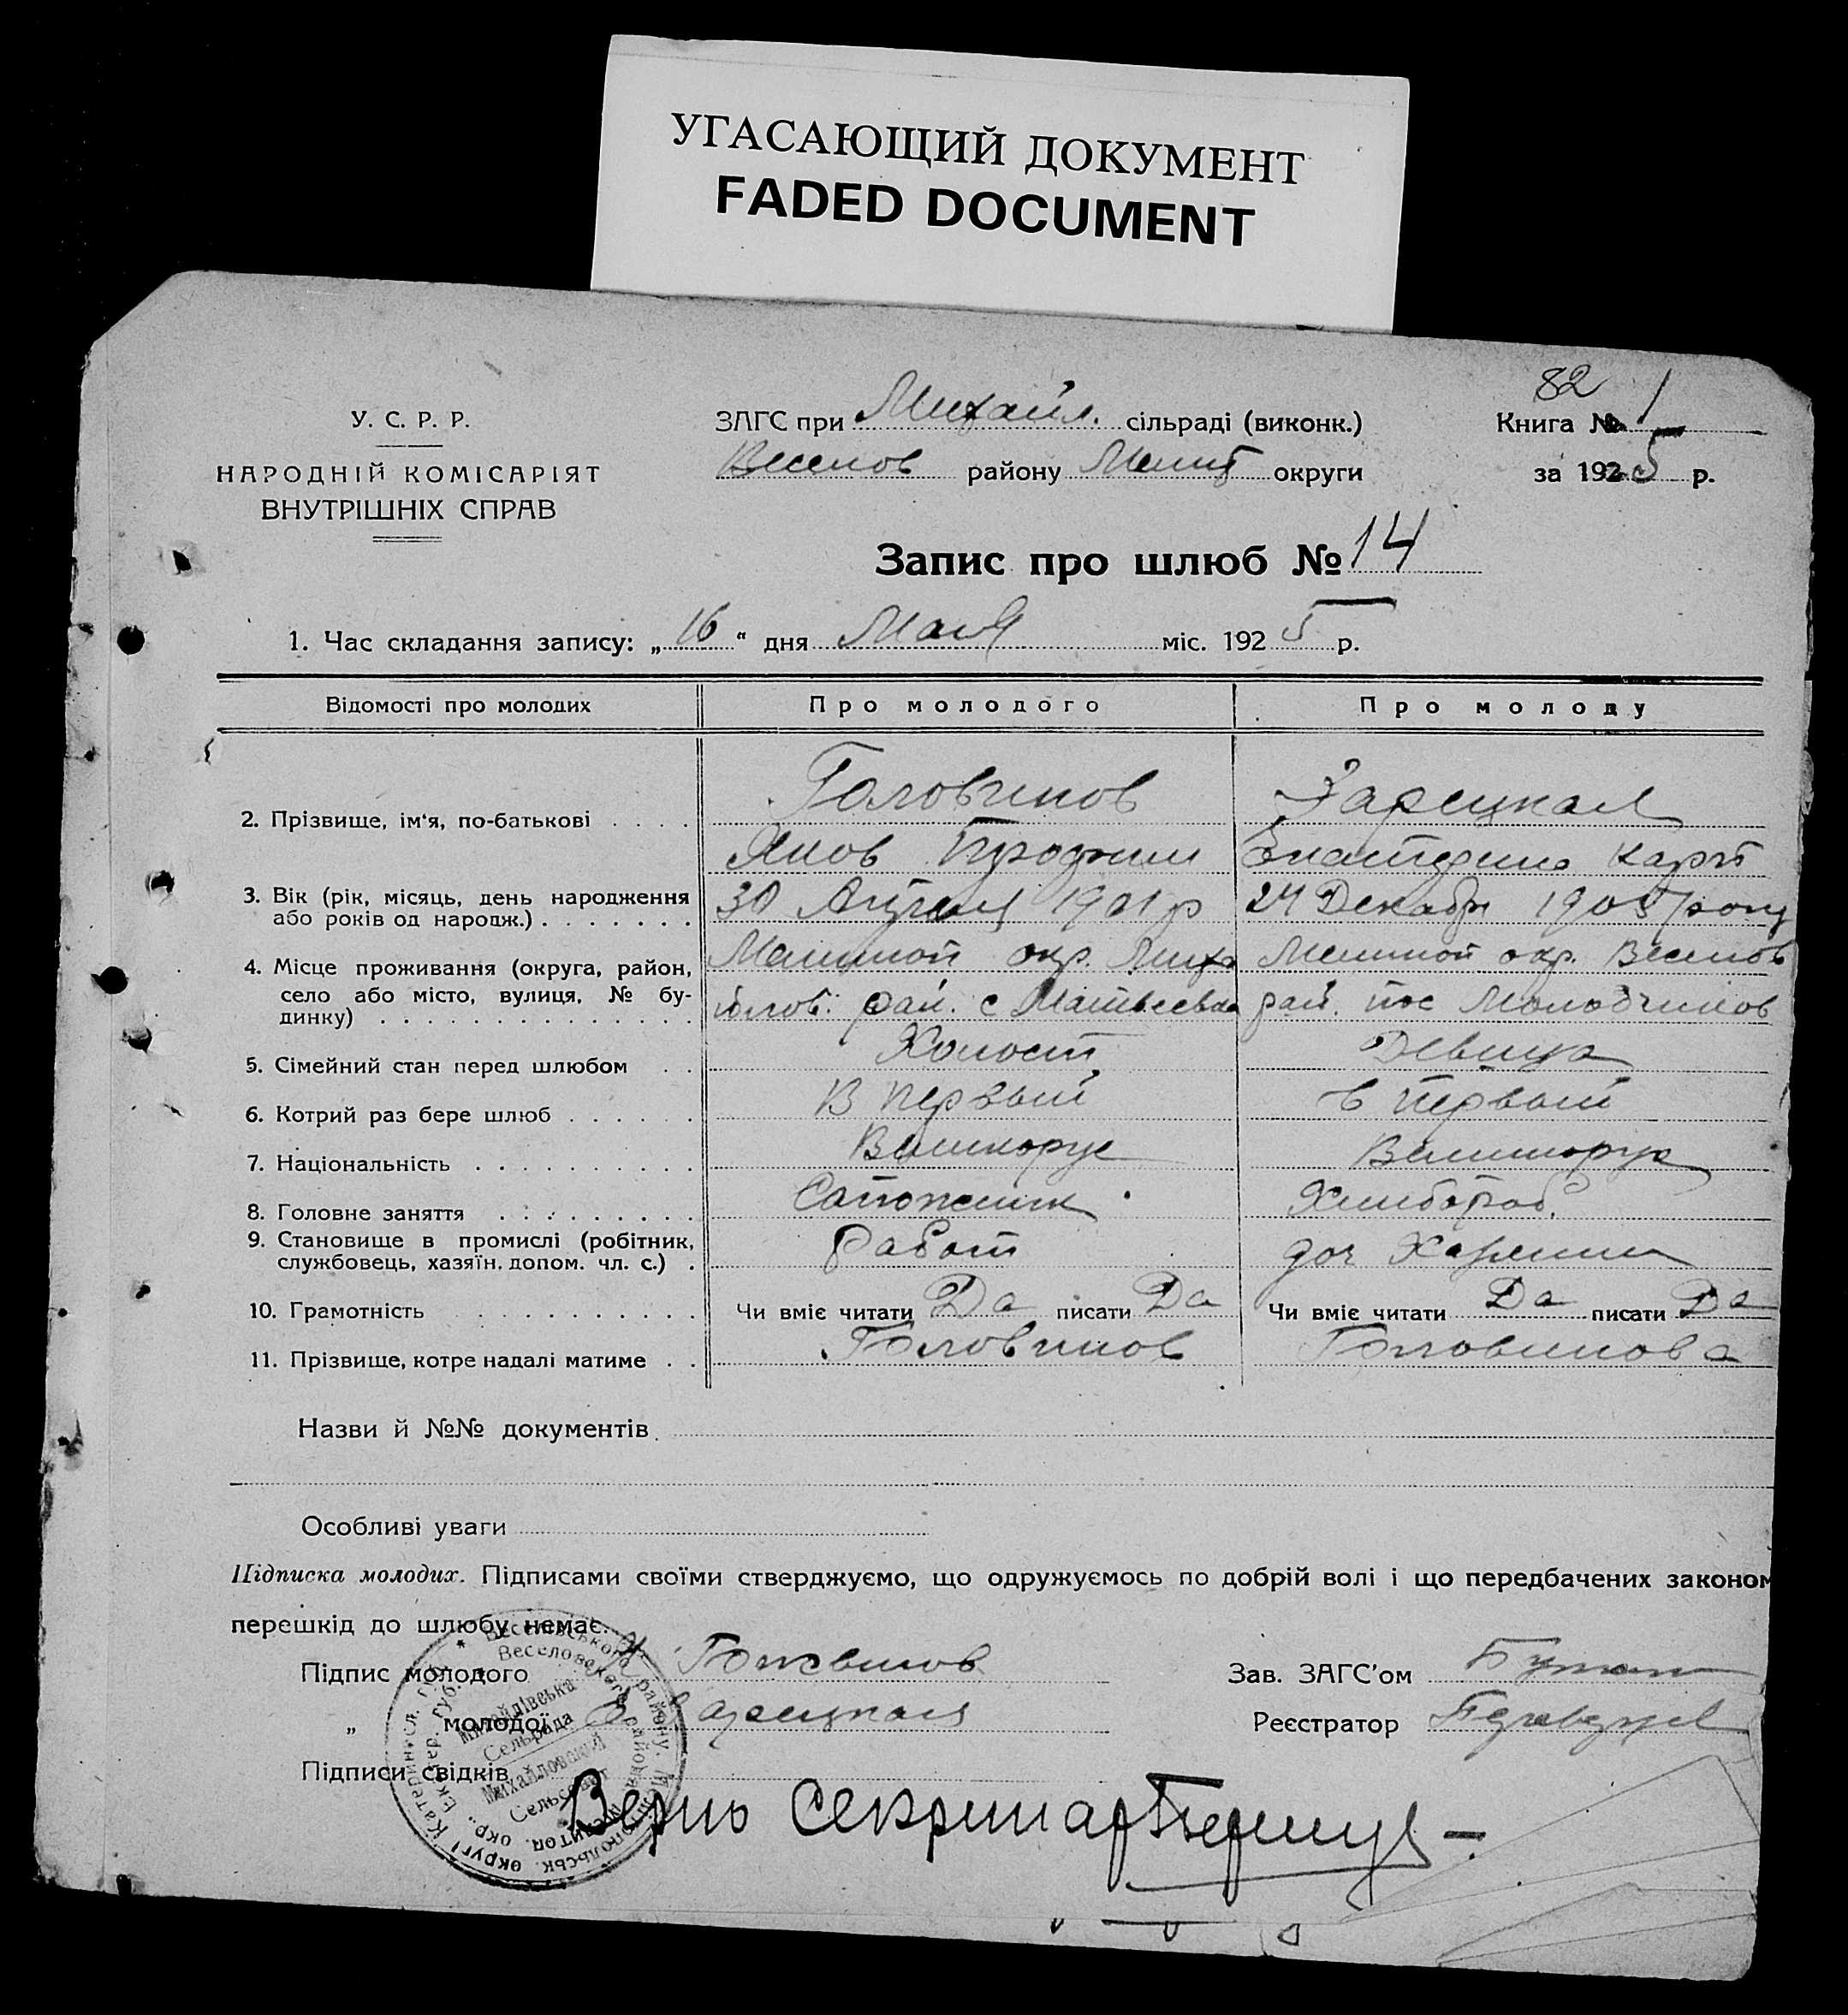 УГАСАЮЩИЙ ДОКУМЕНТ
FADED DOCUMENT
82
У. С. Р. Р.
НАРОДНІЙ КОМІСАРІЯТ
ВНУТРІШНІХ СПРАВ
ЗАГС при Михайл. сільраді (виконк.)
Веселов району Мелит округи
Книга № 1
за 1925 р.
Запис про шлюб № 14
1. Час складання запису: „16“ дня Мая міс. 1925 р.
Відомості про молодих Про молодого Про молоду
2. Прізвище, ім‘я, по-батькові . . . . Головинов Зарецкая
Яков Екатерина Карп
3. Вік (рік, місяць, день народження або років од народж.) . . . . . . . 30 Апреля 1901 р 24 Декабр 1905 року
4. Місце проживання (округа, район, село або місто, вулиця, № будинку) . . . . . . . . . . . . . .
Мелитоп окр. Миха Мелитоп окр. Веселов
йлов. рай. с Матвеевка рай. пос
5. Сімейний стан перед шлюбом . . Холост Девица
6. Котрий раз бере шлюб . . . . . . В первый в первый
7. Національність . . . . . . . . . . Великорус Великорус
8. Головне заняття . . . . . . . . . Сапожник Хлебороб.
9. Становище в промислі (робітник, службовець, хазяїн, допом. чл. с.) . Работ доч Хазяина
10. Грамотність . . . . . . . . . . Чи вміє читати Да писати Да Чи вміє читати Да писати Да
11. Прізвище, котре надалі матиме . . Головинов Головинова
Назви й №№ документів
Особливі уваги
Підписка молодих. Підписами своїми стверджуємо, що одружуємось по добрій волі і що передбачених законом
перешкід до шлюбу немає.
Підпис молодого Головинов Зав. ЗАГС’ом
„ молодої Е Зарецкая Реєстратор
Підписи свідків
Михайлівська
Сельрада
Михайловский
Сельсовет
Верно Секритар